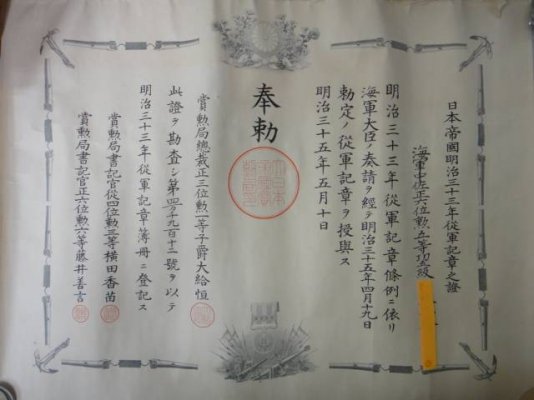 日本帝國明治三十三年從軍記章之證
海軍中佐正六位勲五等功五級
明治三十三年從軍記章條例ニ依リ
海軍大臣ノ奏請ヲ經テ明治三十五年四月十九日
勅定ノ從軍記章ヲ授與ス
明治三十五年五月十日
奉勅
賞勲局總裁正三位勲一等子爵大給恒
此證ヲ勘査シ第四千九百十二號ヲ以テ
明治三十三年從軍記章簿冊ニ登記ス
賞勲局書記官從四位勲三等横田香苗
賞勲局書記官正六位勲六等藤井善言